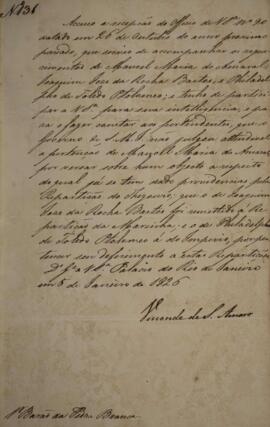 Nº 31
Accuso a recepção do Officio de V.Sª Nº 90
datado em 26 de Outubro do anno proximo
passado, que serviu de acompanhar os reque-
rimentos de Manoel Maria do Amaral,
Joaquim José da Rocha Bastos, e Philadel-
pho de Toledo Ptolomeo; e tenho de partici-
par a V.Sª para sua intelligencia, e pa-
ra o fazer constar aos pertendentes, que o
Governo de S.M.I. não julgou attendivel
a pertenção de Manoel Maria do Amaral
por versar sobre hum objecto a respeito
do qual já se tem dado providencias pela
Repartição do ; que o de Joaquim
José da Rocha Bastos foi remettido á Re-
partição da Marinha, e o de Philadelpho
de Toledo Ptolomeo á do Imperio, por per-
tencer seu deferimento a estas Repartições.
Dˢ Gᵉ a V.Sª Palacio do Rio de Janeiro
em 5 de Janeiro de 1826
Visconde de S. Amaro
Sr. Barão da Pedra Branca